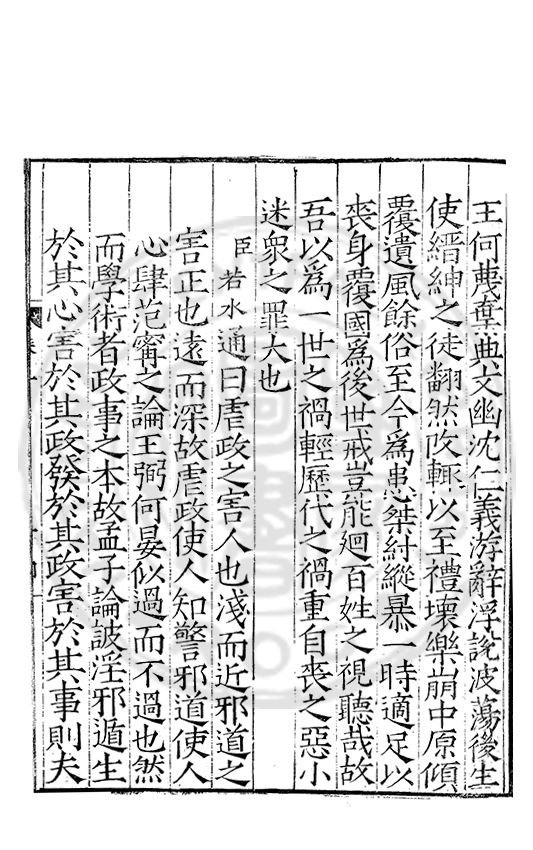 王何蔑棄典文幽沈仁義游辭浮說波蕩後生
使縉紳之徒翻然改轍以至禮壞樂崩中原傾
覆遺風餘俗至今為患桀紂縱暴一時適足以
喪身覆國為後世戒豈能迴百姓之視聽哉故
吾以為一世之禍輕歷代之禍重自喪之惡小
迷衆之罪大也
臣若水通曰虐政之害人也淺而近邪道之
害正也遠而深故虐政使人知警邪道使人
心肆范甯之論王弼何晏似過而不過也然
而學術者政事之本故孟子論詖淫邪遁生
於其心害於其政發於其政害於其事則夫